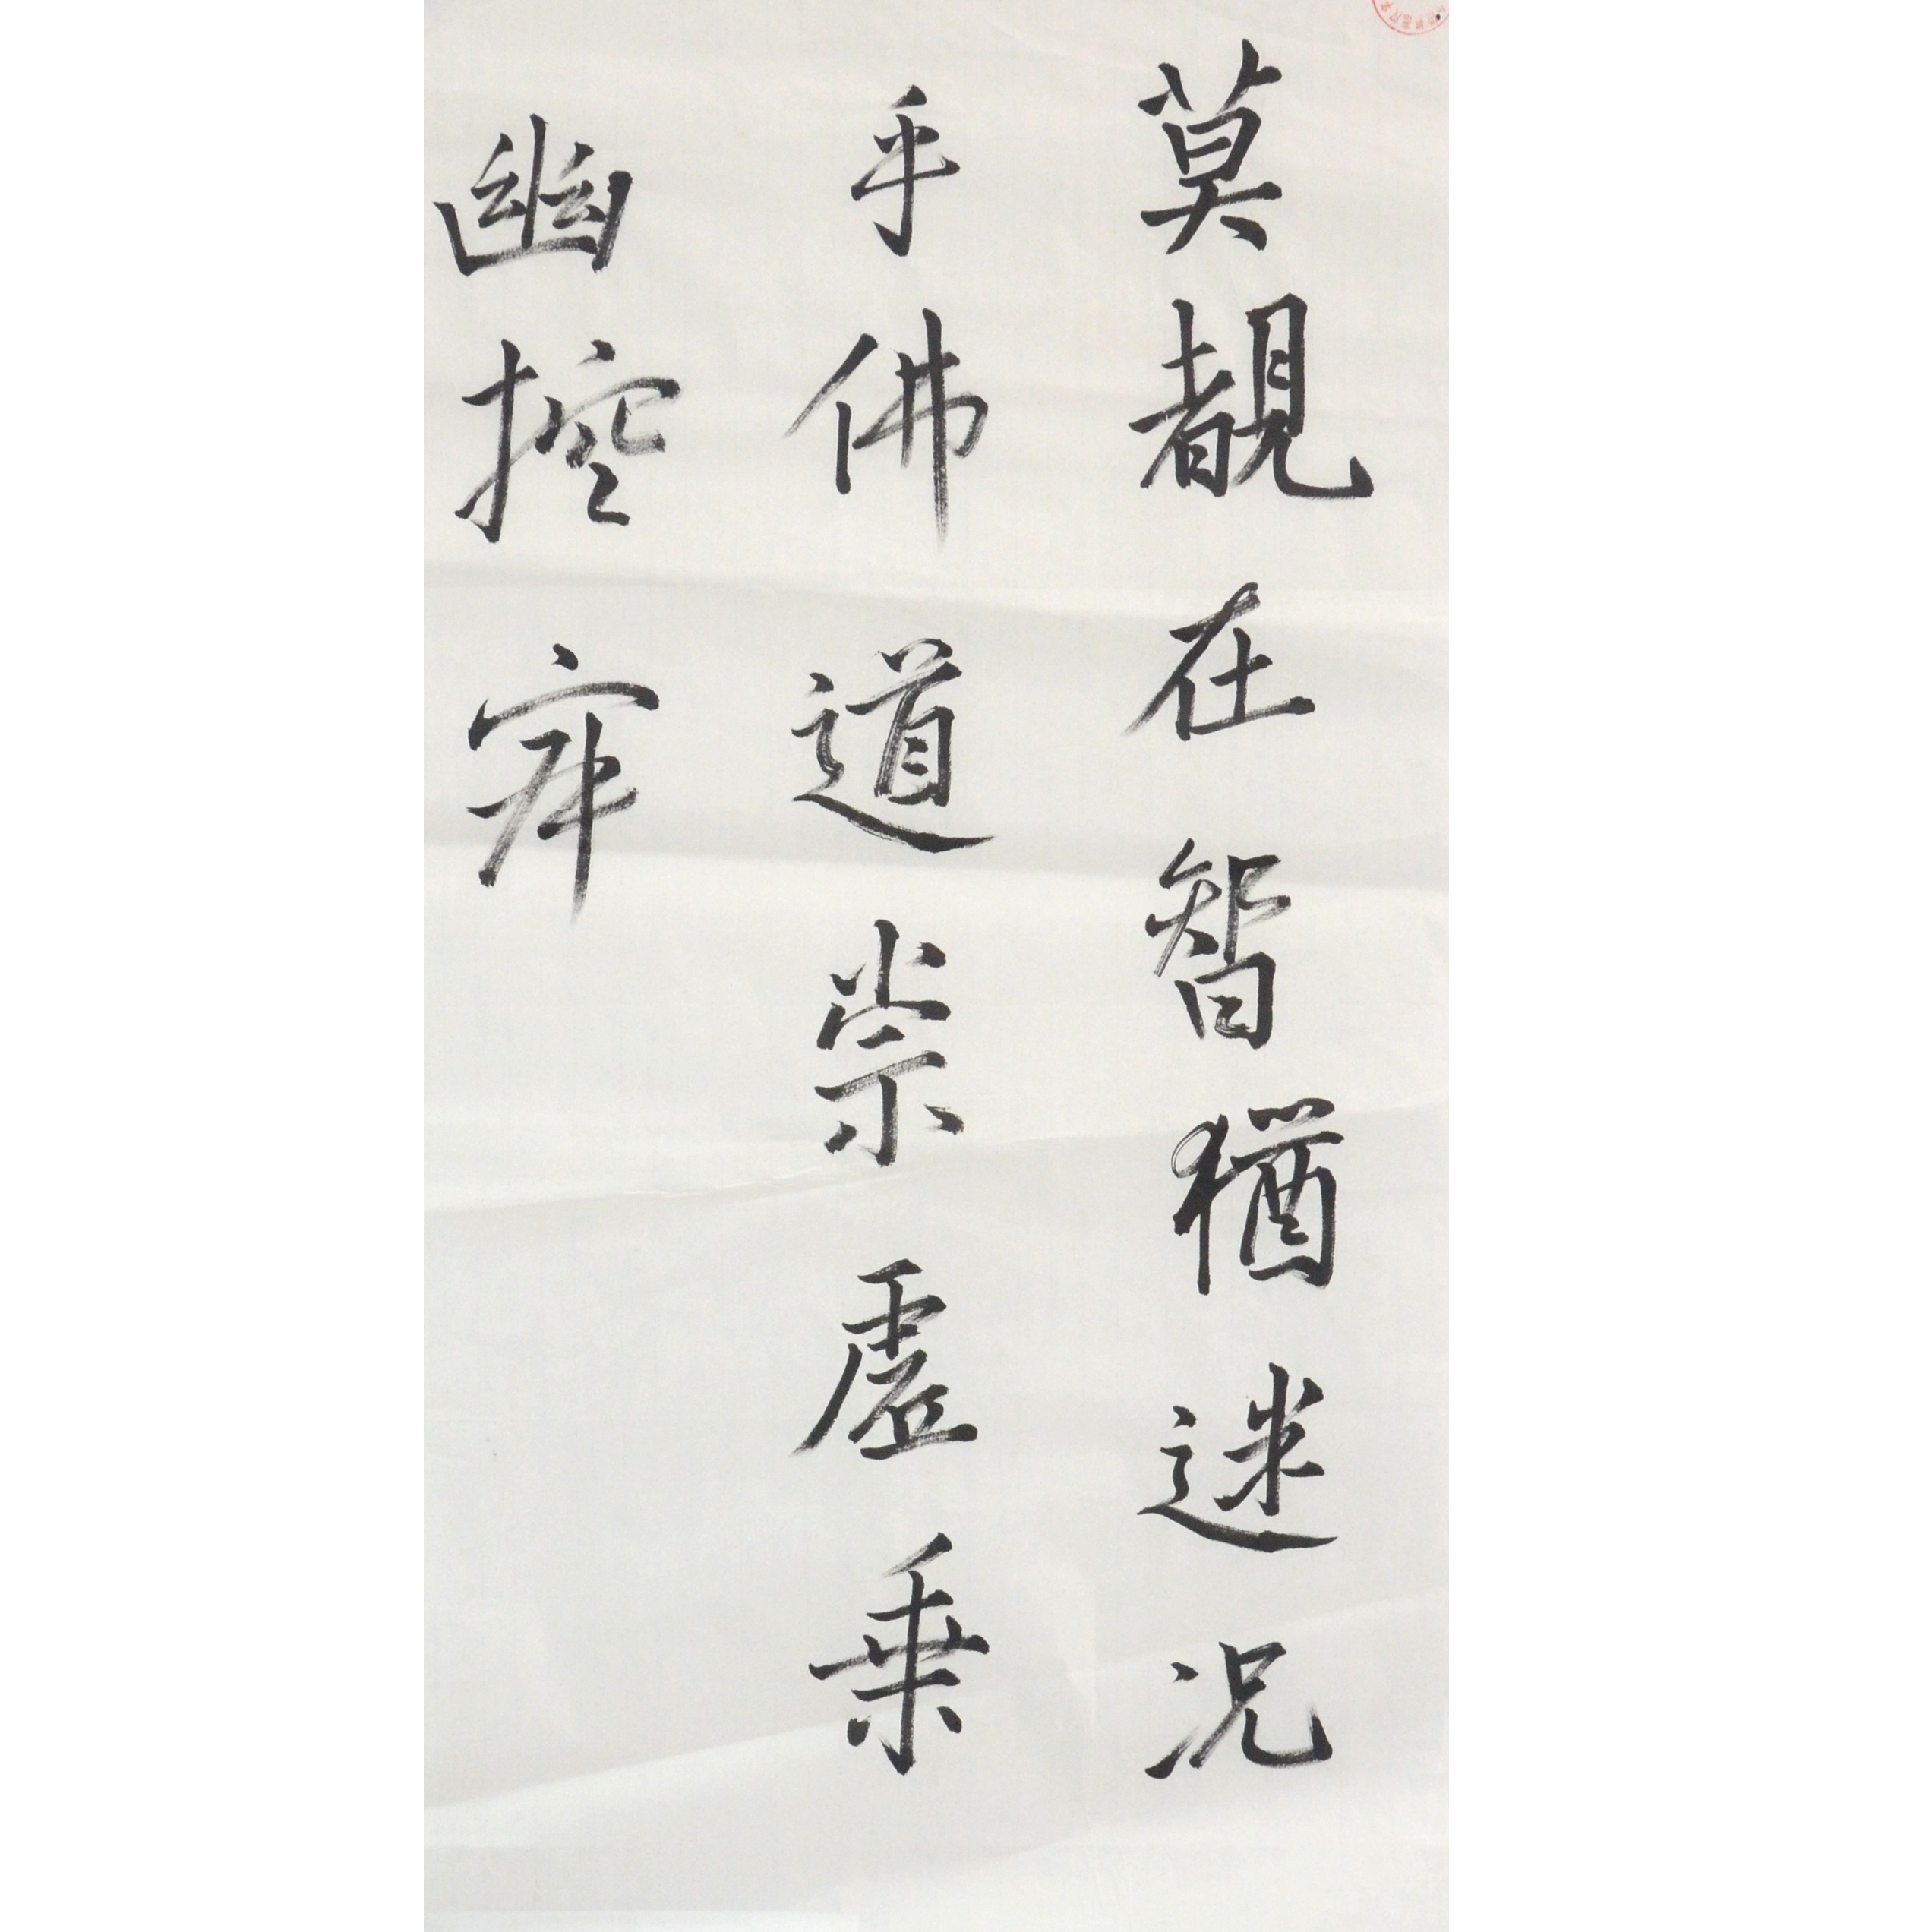 莫覩在智猶迷况
乎佛道崇虛乗
幽控寂